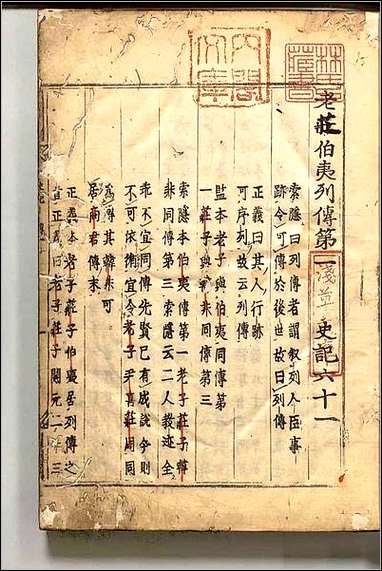 老莊伯夷列傳第一 史記六十一
索隱曰列傳者謂叙列人臣事
跡令可傳於後世故曰列傳
正義曰其人行跡
可序列故云列傳
監本老子與伯夷同傳第
一莊子與韓非同傳第三
索隱本伯夷傳第一老子莊子韓
非同傳第三索隱云二人教迹全
乖不宜同傳先賢已有成說今則
不可依循宜令老子尹喜莊周同
為傳其韓非可
居商君傳末
正義本老子莊子伯夷居列傳之
首正義曰老子莊子開元二十三
林氏藏書
內閣文庫
淺草